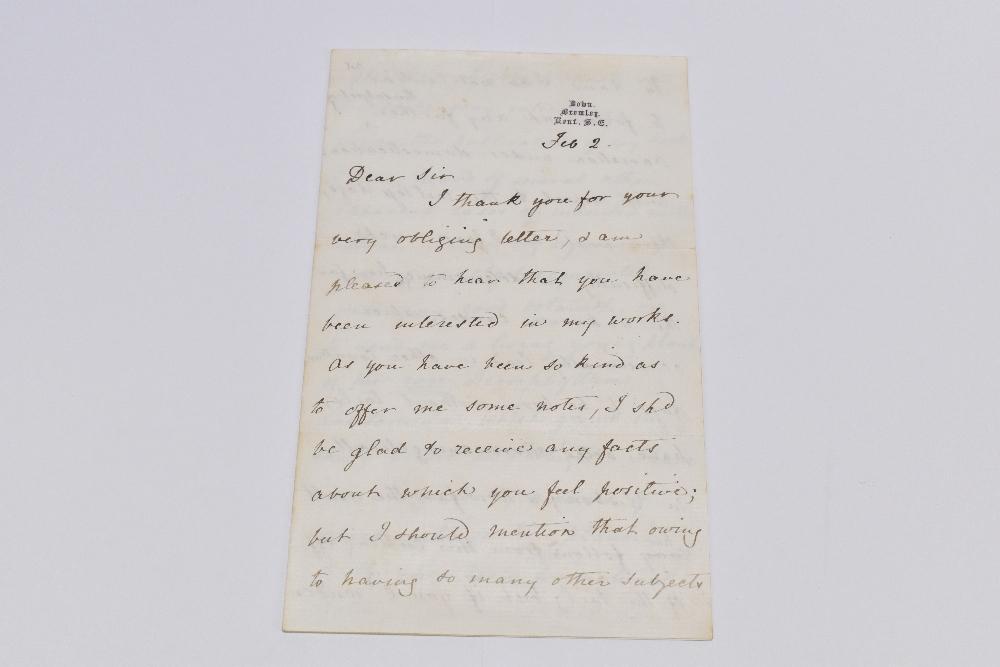 Down.
Bromley.
Kent. S.E.
Feb 2.
Dear Sir
I thank you for your
very obliging letter, & am
pleased to hear that you have
been interested in my works.
As you have been so kind as
to offer me some notes, I shd
be glad to receive any facts
about which you feel positive;
but I should mention that owing
to having so many other subjects